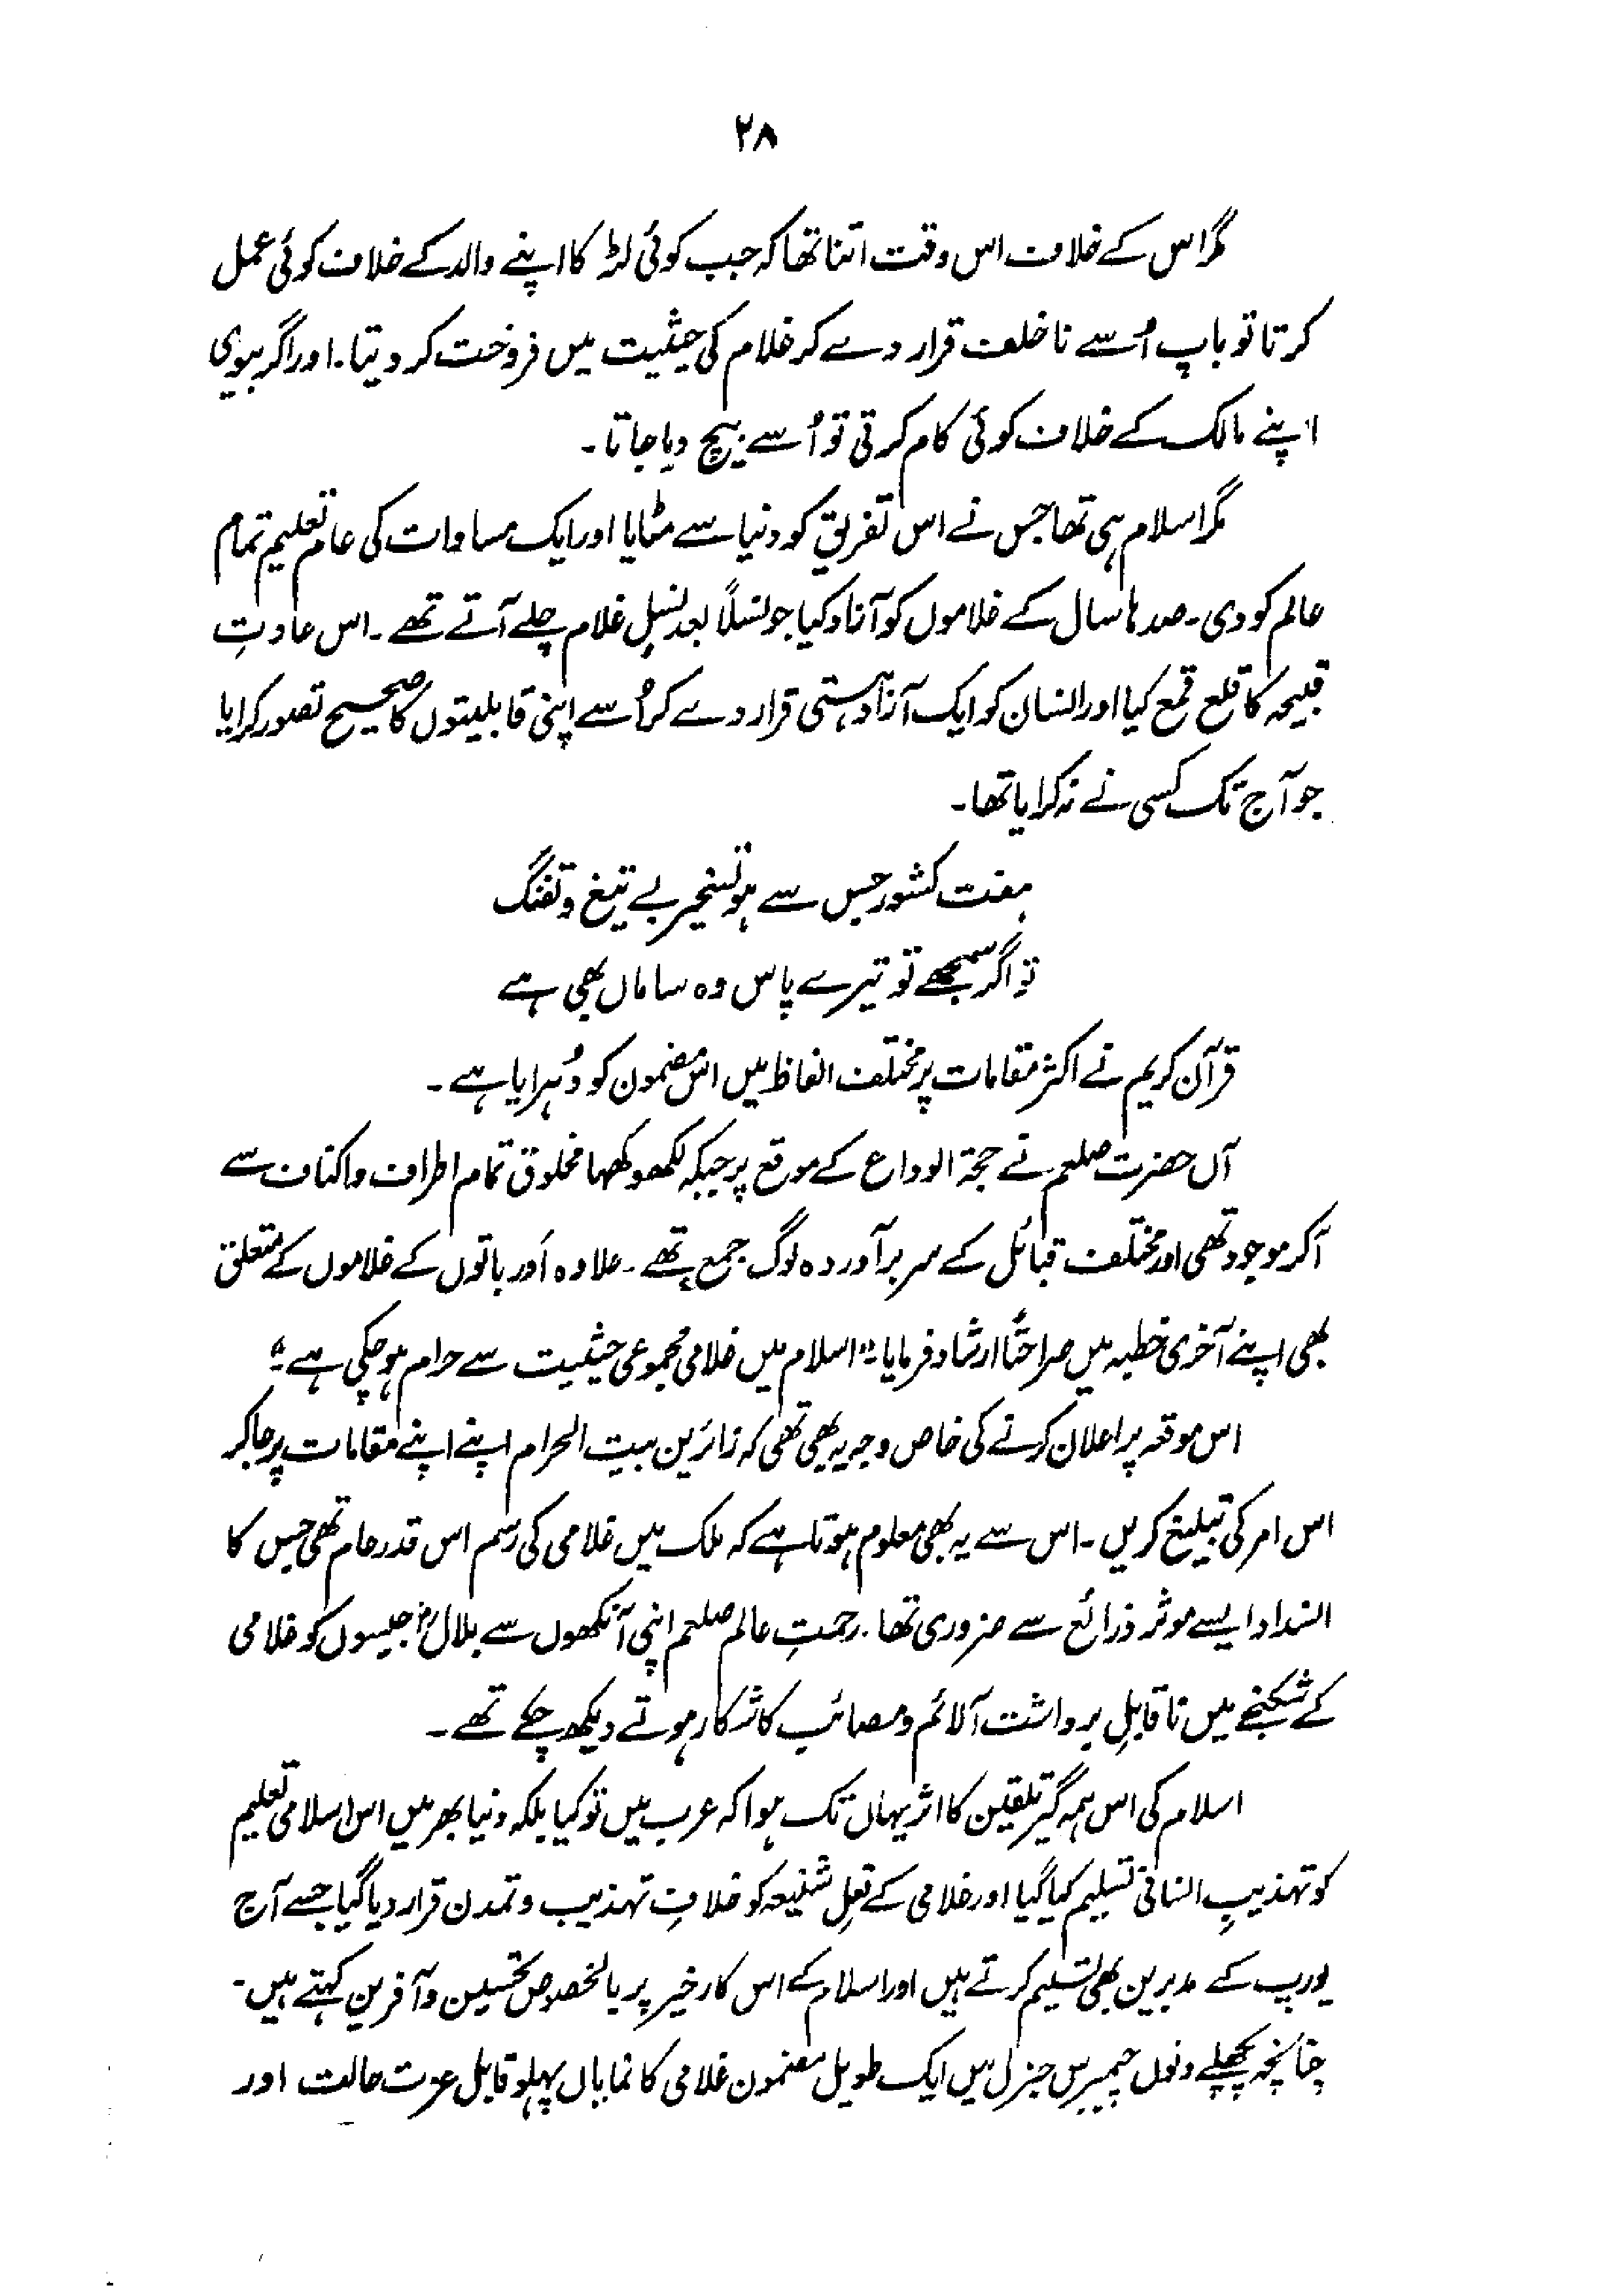 ۲۸
مگر اس کے خلاف اس وقت اتنا تھا کہ جب کوئی لڑکا اپنے والد کے خلاف کوئی عمل
کرتا تو باپ اُسے ناخلف قرار دے کر غلام کی حیثیت میں فروخت کر دیتا۔ اور اگر بیوی
اپنے مالک کے خلاف کوئی کام کرتی تو اُسے بیچ دیا جاتا۔
مگر اسلام ہی تھا جس نے اس تفریق کو دنیا سے مٹایا اور ایک مساوات کی عام تعلیم تمام
عالم کو دی۔ صدہا سال کے غلاموں کو آزاد کیا جو نسلاً بعد نسلٍ غلام چلے آتے تھے۔ اس عادتِ
قبیحہ کا قلع قمع کیا اور انسان کو ایک آزاد ہستی قرار دے کر اُسے اپنی قابلیتوں کا صحیح تصور کرایا
جو آج تک کسی نے نہ کرایا تھا۔
ہفت کشور جس سے ہو تسخیر بے تیغ و تفنگ
تو اگر سمجھے تو تیرے پاس وہ ساماں بھی ہے
قرآن کریم نے اکثر مقامات پر مختلف الفاظ میں اس مضمون کو دُہرایا ہے۔
آں حضرت صلعم نے حجۃ الوداع کے موقع پر جبکہ لکھوکھہا مخلوق تمام اطراف و اکناف سے
آکر موجود تھی اور مختلف قبائل کے سربرآوردہ لوگ جمع تھے۔ علاوہ اَور باتوں کے غلاموں کے متعلق
بھی اپنے آخری خطبہ میں صراحتًا ارشاد فرمایا۔ "اسلام میں غلامی مجموعی حیثیت سے حرام ہو چکی ہے۔"
اس موقعہ پر اعلان کرنے کی خاص وجہ یہ بھی تھی کہ زائرین بیت الحرام اپنے اپنے مقامات پر جا کر
اس امر کی تبلیغ کریں۔ اس سے یہ بھی معلوم ہوتا ہے کہ ملک میں غلامی کی رسم اس قدر عام تھی جس کا
انسداد ایسے موثر ذرائع سے ضروری تھا۔ رحمتِ عالم صلعم اپنی آنکھوں سے بلالؓ جیسوں کو غلامی
کے شکنجے میں ناقابلِ برداشت آلائم و مصائب کا شکار ہوتے دیکھ چکے تھے۔
اسلام کی اس ہمہ گیر تلقین کا اثر یہاں تک ہوا کہ عرب میں تو کیا بلکہ دنیا بھر میں اس اسلامی تعلیم
کو تہذیبِ انسانی تسلیم کیا گیا اور غلامی کے فعلِ شنیعہ کو خلافِ تہذیب و تمدن قرار دیا گیا جسے آج
یورپ کے مدبرین بھی تسلیم کرتے ہیں اور اسلام کے اس کار خیر پر بالخصوص تحسین و آفرین کہتے ہیں۔
چنانچہ پچھلے دنوں چیمبرس جنرل میں ایک طویل مضمون غلامی کا نمایاں پہلو قابل عزت حالت اور